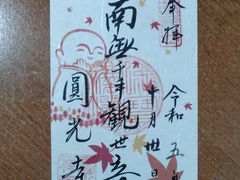 奉拝
令和五年
十月廿日
南無千手観世音
圓光寺